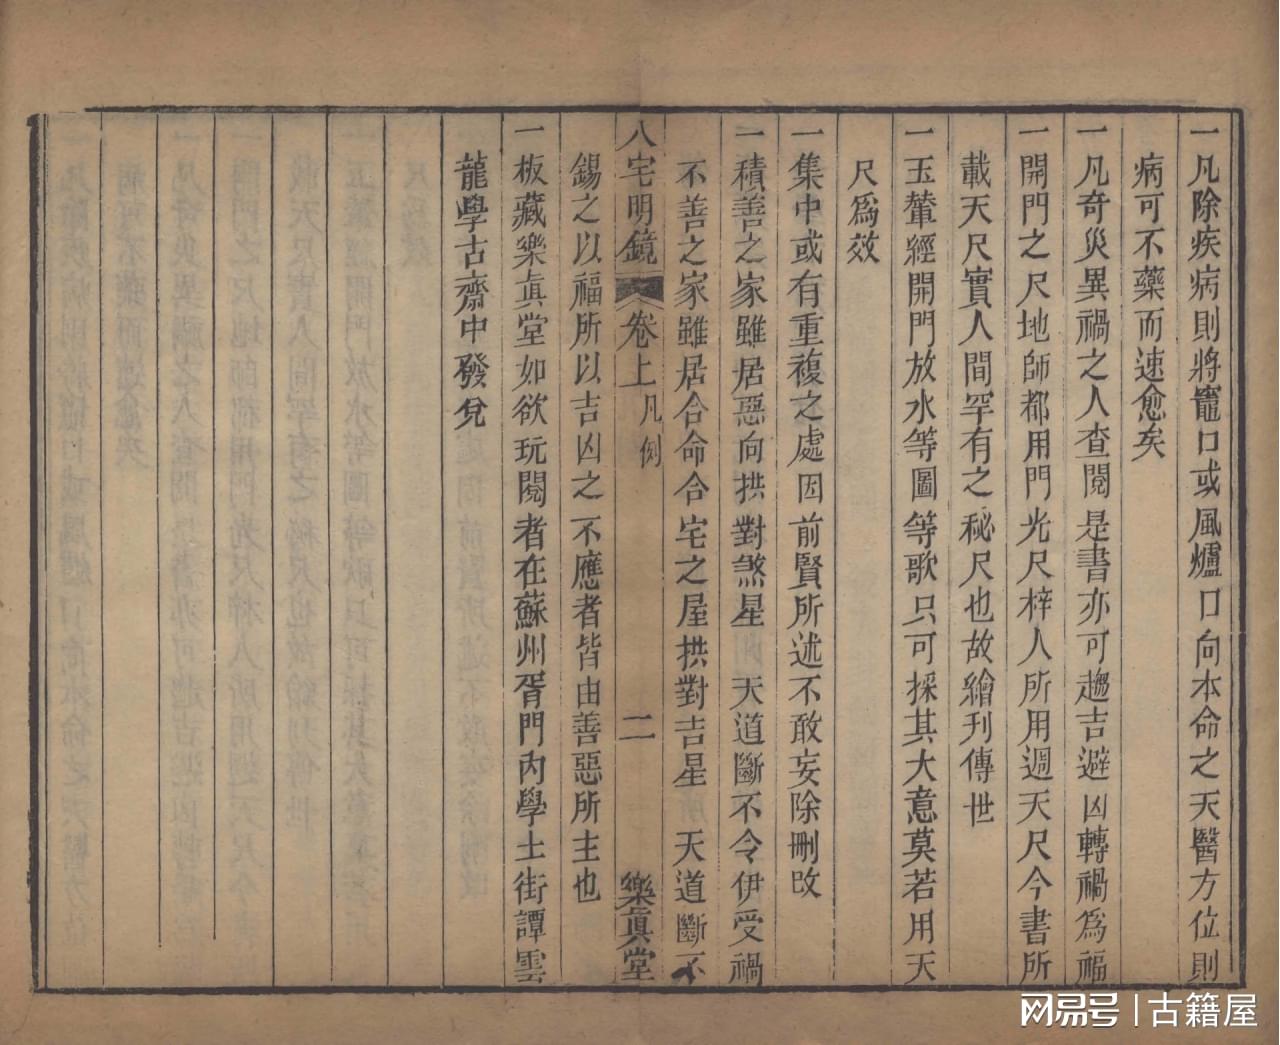 一凡除疾病則將竈口或風爐口向本命之天醫方位則
病可不藥而速愈矣
一凡奇災異禍之人查閱是書亦可趨吉避凶轉禍爲福
一開門之尺地師都用門光尺梓人所用週天尺今書所
載天尺實人間罕有之秘尺也故繪刊傳世
一玉輦經開門放水等圖等歌只可採其大意莫若用天
尺爲效
一集中或有重複之處因前賢所述不敢妄除刪改
一積善之家雖居惡向拱對煞星 天道斷不令伊受禍
不善之家雖居合命合宅之屋拱對吉星 天道斷不
八宅明鏡 卷上 凡例 二 樂眞堂
錫之以福所以吉凶之不應者皆由善惡所主也
一板藏樂眞堂如欲玩閱者在蘇州胥門內學士街譚雲
龍學古齋中發兌
网易号 | 古籍屋